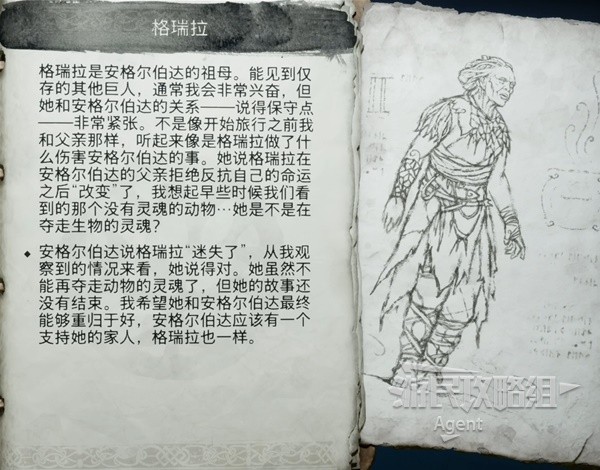 格瑞拉
格瑞拉是安格尔伯达的祖母。能见到仅
存的其他巨人，通常我会非常兴奋，但
她和安格尔伯达的关系——说得保守点
——非常紧张。不是像开始旅行之前我
和父亲那样，听起来像是格瑞拉做了什
么伤害安格尔伯达的事。她说格瑞拉在
安格尔伯达的父亲拒绝反抗自己的命运
之后“改变”了，我想起早些时候我们看
到的那个没有灵魂的动物…她是不是在
夺走生物的灵魂？
◆ 安格尔伯达说格瑞拉“迷失了”，从我观
察到的情况来看，她说得对。她虽然不
能再夺走动物的灵魂了，但她的故事还
没有结束。我希望她和安格尔伯达最终
能够重归于好，安格尔伯达应该有一个
支持她的家人，格瑞拉也一样。
游民攻略组
Agent